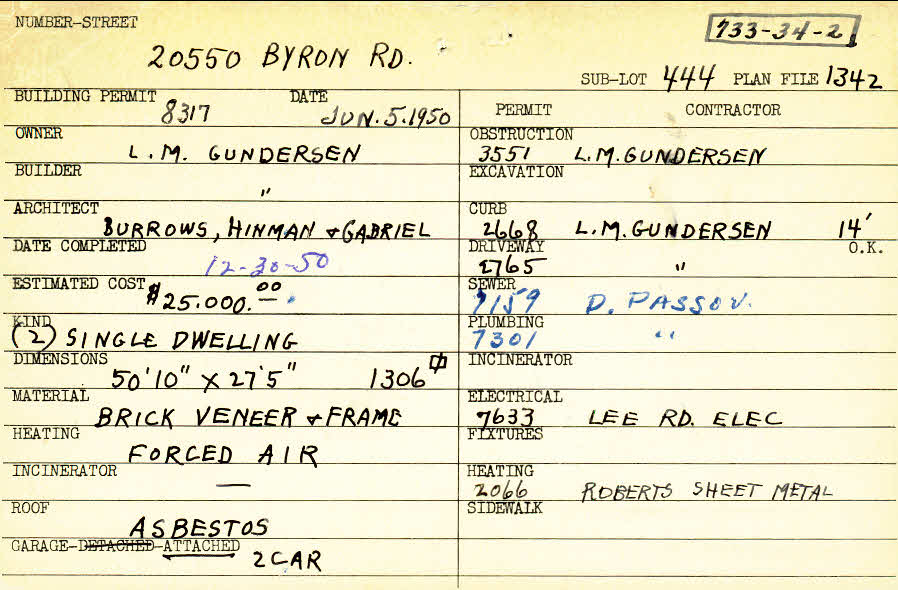 NUMBER-STREET
733-34-2
20550 BYRON RD.
SUB-LOT 444 PLAN FILE 1342
BUILDING PERMIT DATE
8317 JUN. 5. 1950
OWNER
L.M. GUNDERSEN
BUILDER
"
ARCHITECT
BURROWS, HINMAN & GABRIEL
DATE COMPLETED
12-30-50
ESTIMATED COST
$25.000.00
KIND
(2) SINGLE DWELLING
DIMENSIONS
50'10" X 27'5" 1306
MATERIAL
BRICK VENEER & FRAME
HEATING
FORCED AIR
INCINERATOR
—
ROOF
ASBESTOS
GARAGE-DETACHED-ATTACHED
2 CAR
PERMIT CONTRACTOR
OBSTRUCTION
3551 L.M. GUNDERSEN
EXCAVATION
CURB
2668 L.M. GUNDERSEN 14'
DRIVEWAY O.K.
2765 "
SEWER
7159 D. PASSOV.
PLUMBING
7301 "
INCINERATOR
ELECTRICAL
7633 LEE RD. ELEC
FIXTURES
HEATING
2066 ROBERTS SHEET METAL
SIDEWALK